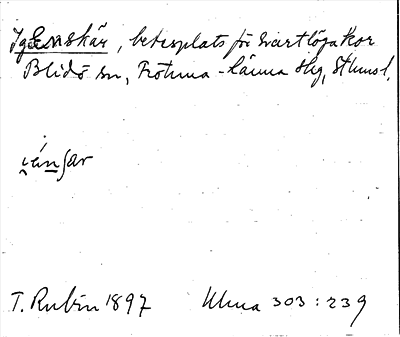 Enskär, betesplats för Svartlögakor
Blidö sn, Frötuna-Länna slg, Sthms l.
T. Rubin 1897 Ulua 303:239